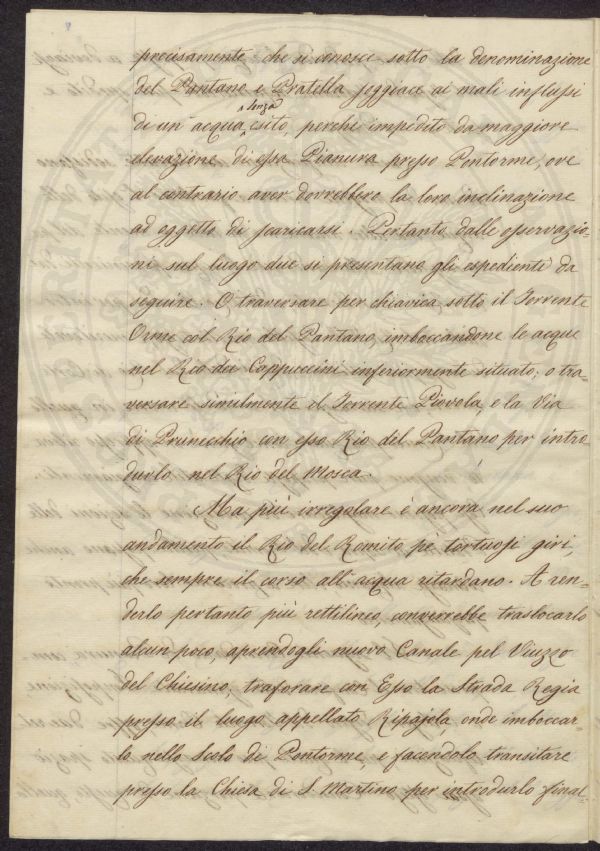 precisamente che si conosce sotto la denominazione
del Pantano e Pratella soggiace ai mali influssi
di un' acqua senza esito, perchè impedito da maggiore
elevazione di essa Pianura presso Pontorme, ove
al contrario aver dovrebbero la loro inclinazione
ad oggetto di scaricarsi. Pertanto dalle osservazio-
ni sul luogo due si presentano gli espedienti da
seguire. O traversare per chiavica sotto il Torrente
Orme col Rio del Pantano, imboccandone le acque
nel Rio dei Cappuccini inferiormente situato; o tra-
versare similmente il Torrente Piovola, e la Via
di Prunecchio con esso Rio del Pantano per intro-
durlo nel Rio del Mosca.
Ma più irregolare è ancora nel suo
andamento il Rio del Romito pè tortuosi giri,
che sempre il corso all' acqua ritardano. A ren-
derlo pertanto più rettilineo, converrebbe traslocarlo
alcun poco, aprendogli nuovo Canale pel Viuzzo
del Chiesino, traforare con Esso la Strada Regia
presso il luogo appellato Ripajola, onde imboccar-
lo nello Scolo di Pontorme, e facendolo transitare
presso la Chiesa di S. Martino per introdurlo final-